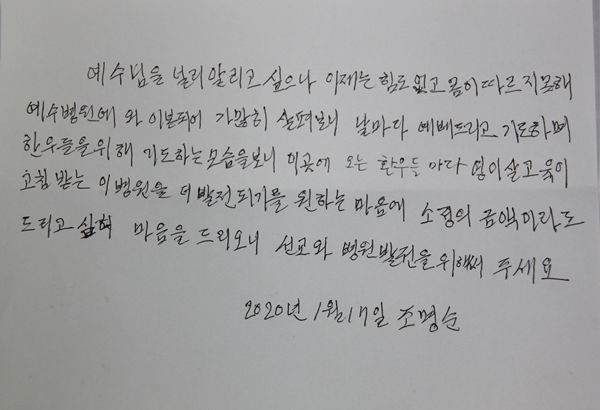 예수님을 널리 알리고 싶으나 이제는 힘도 없고 몸이 따르지 못해
예수병원에 와 입원하여 가만히 살펴보니 날마다 예배드리고 기도하며
환우들을 위해 기도하는 모습을 보니 이곳에 오는 환우들 마다 영이 살고 육이
고침 받는 이 병원을 더 발전되기를 원하는 마음에 소정의 금액이라도
드리고 싶어 마음을 드리오니 선교와 병원발전을 위해써 주세요
2020년 1월 17일 조명순